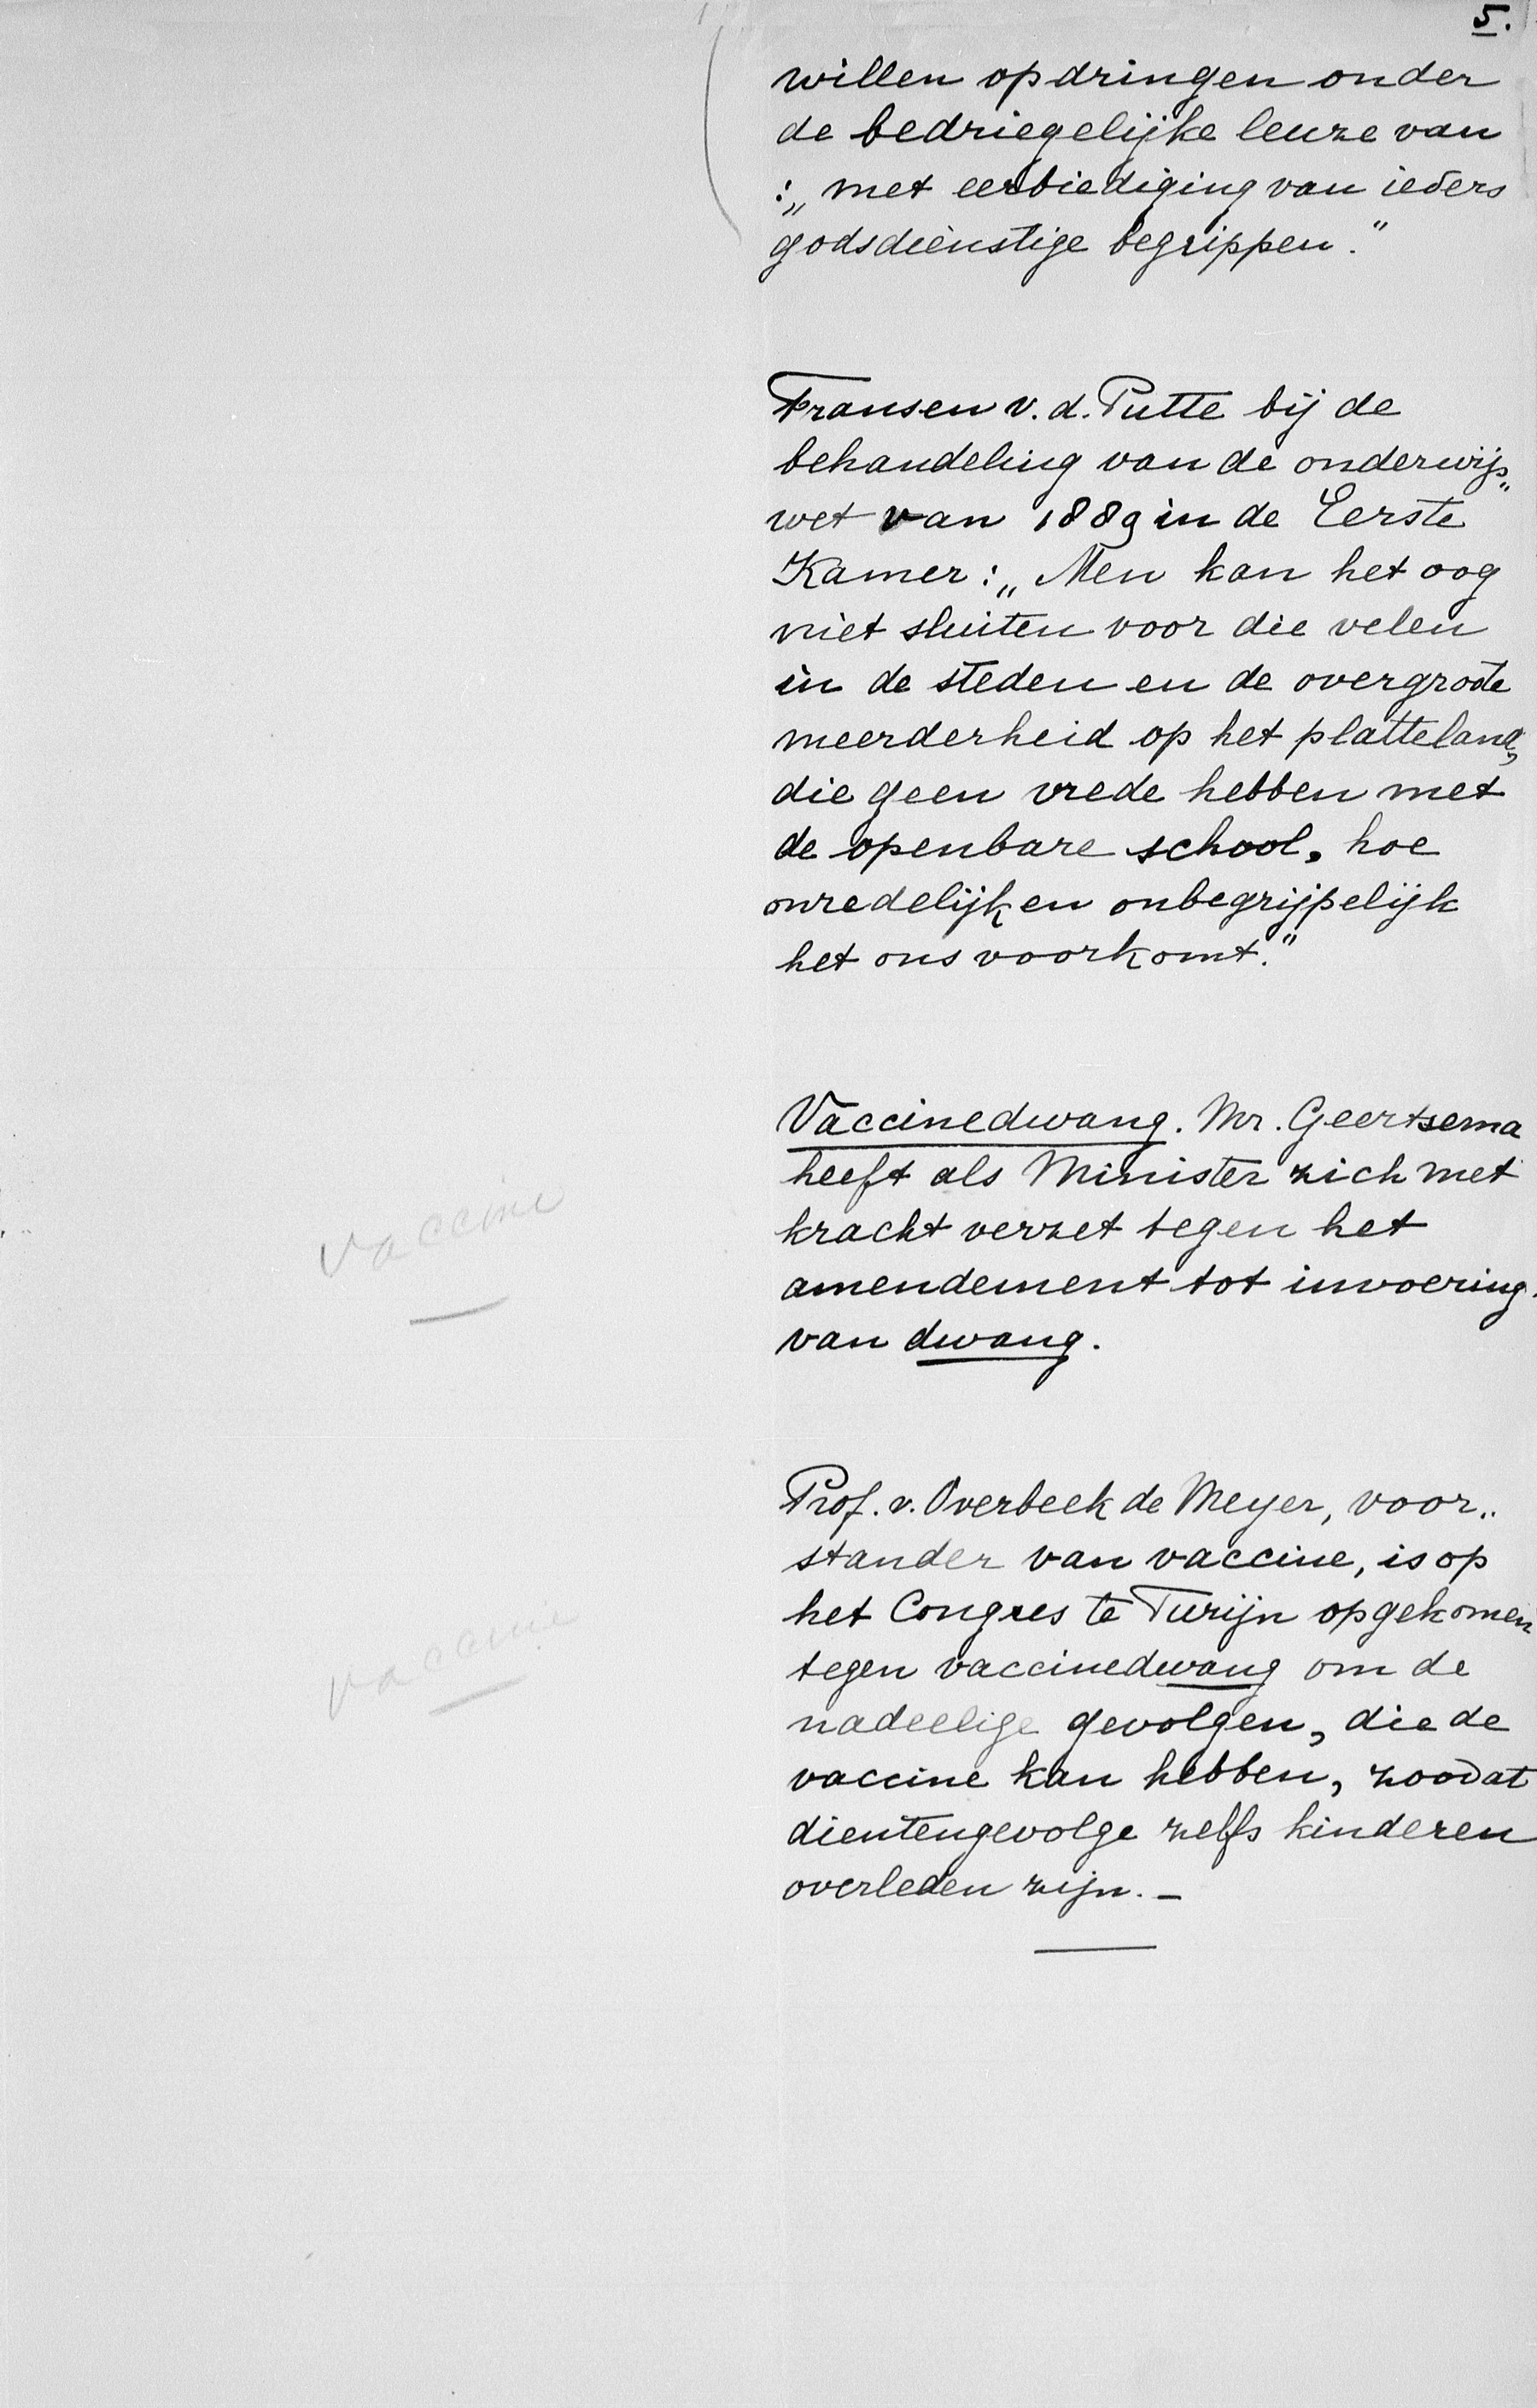 5.
willen opdringen onder
de bedriegelijke leuze van
:„met eerbiediging van ieders
godsdienstige begrippen."
Fransen v. d. Putte bij de
behandeling van de onderwijs„
wet van 1889 in de Eerste
Kamer: „Men kan het oog
niet sluiten voor die velen
in de steden en de overgroote
meerderheid op het platteland,
die geen vrede hebben met
de openbare school, hoe
onredelijk en onbegrijpelijk
het ons voorkomt."
Vaccinedwang. Mr. Geertsema
heeft als Minister zich met
vaccine
kracht verzet tegen het
amendement tot invoering
van dwang.
Prof. v. Overbeek de Meyer, voor„
stander van vaccine, is op
het Congres te Turijn opgekomen
vaccine
tegen vaccinedwang om de
nadeelige gevolgen, die de
vaccine kan hebben, zoodat
dientengevolge zelfs kinderen
overleden zijn. –